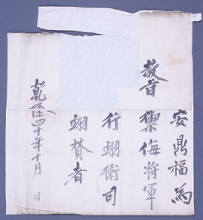 安鼎福爲
敎旨禦侮將軍
行翊衛司
翊贊者
乾隆四十年十月 日